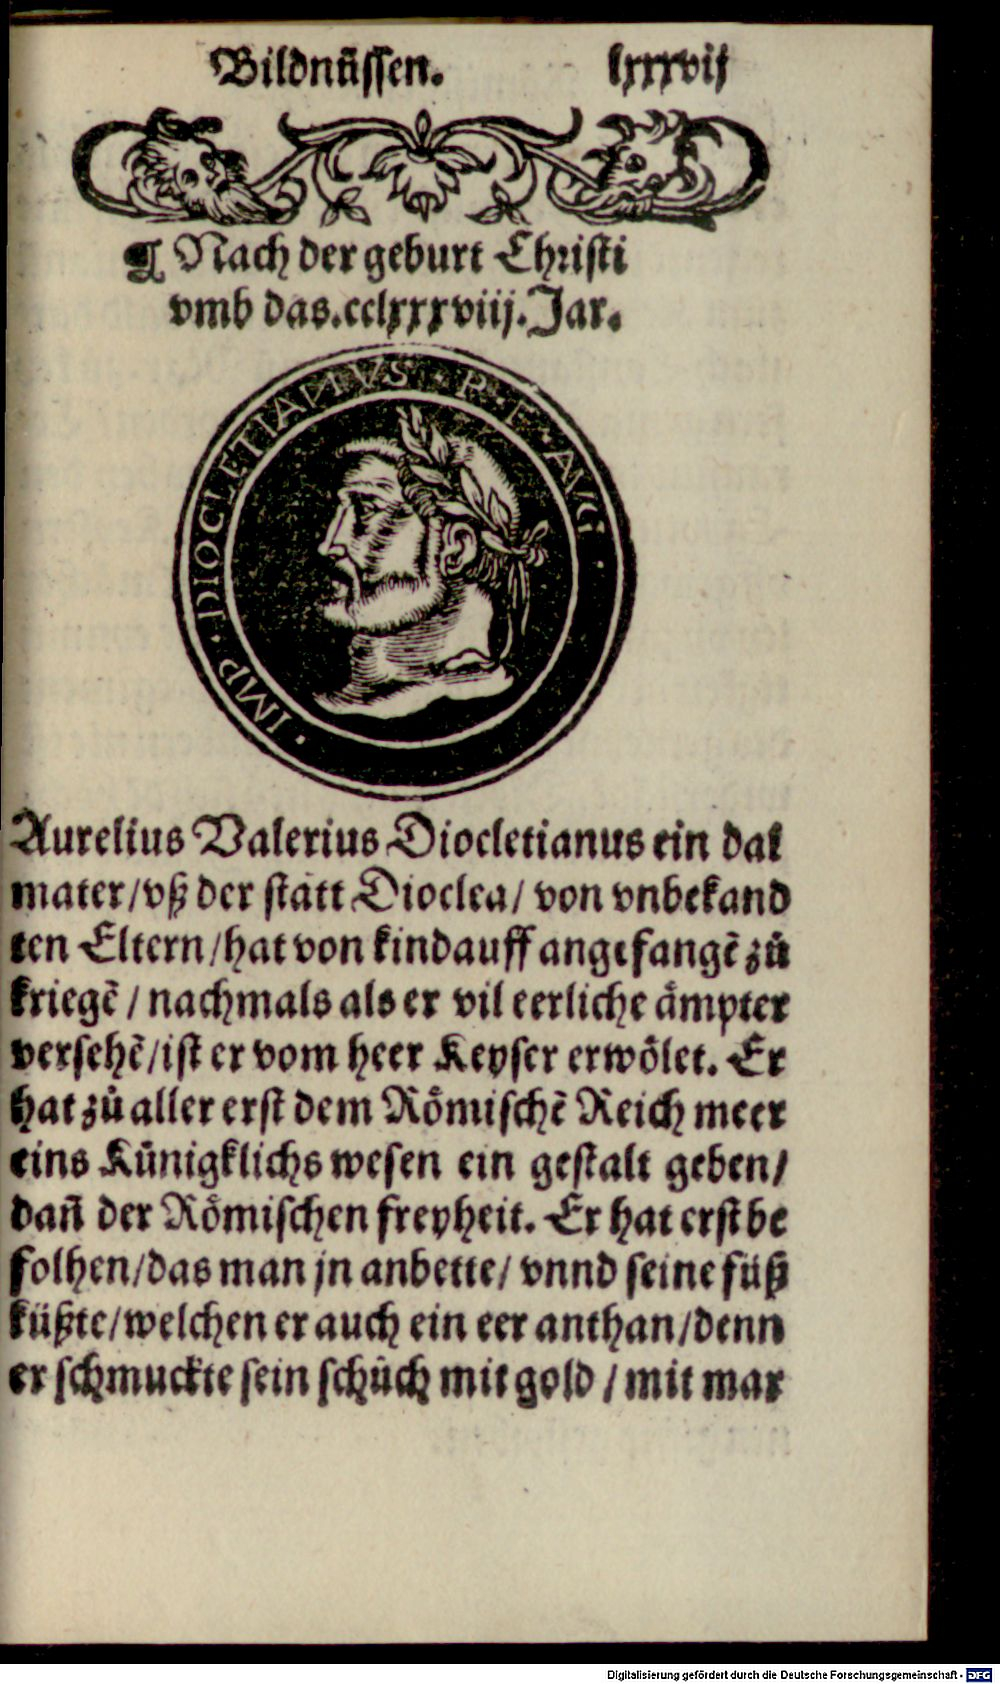 Bildnüssen. lxxxvij
¶ Nach der geburt Christi
vmb das.cclxxxviij.Jar.
· IMP · DIOCLETIANVS · P · F · AVG ·
Aurelius Valerius Diocletianus ein dal
mater/vß der statt Dioclea/ von vnbekand
ten Eltern/hat von kindauff angefangē zů
kriegē / nachmals als er vil eerliche ämpter
versehē/ist er vom heer Keyser erwölet. Er
hat zů aller erst dem Römischē Reich meer
eins Künigklichs wesen ein gestalt geben/
dañ der Römischen freyheit. Er hat erst be
folhen/das man jn anbette/ vnnd seine füß
küßte/welchen er auch ein eer anthan/denn
er schmuckte sein schůch mit gold / mit mar
Digitalisierung gefördert durch die Deutsche Forschungsgemeinschaft - DFG